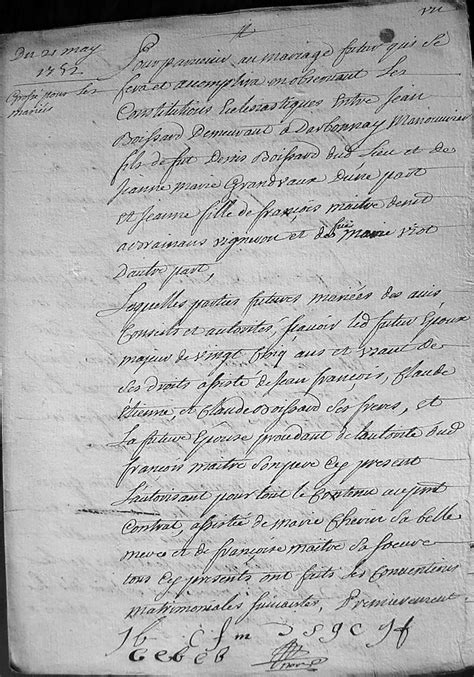 Du 21 may
1751
Grosse pour les
mariés
Pour parvenir au mariage futur qui se
fera et accomplira en observant les
Constitutions Eclesiastiques Entre Jean
Boissard Demeurant a Darbonnay Manouvrier
fils de fut Denis Boissard dud lieu et de
Jeanne Marie Grandvaux d'une part
et Jeanne fille de françois maitre demt
a vigneron et de marie viot
D'autre part,
Lesquelles parties futures mariées des avis
Conseils et autorités, sçavoir led futur Epoux
majeur de vingt Cinq ans et usant de
ses Droits assisté de Jean françois, Claude
Etienne, et Claude Boissard ses freres, et
La future Epouse procedant de l'autorité dud
francois maitre son pere Cy present
L'autorisant pour tout le Contenu au pnt
Contrat, assistée de marie Chevier sa belle
mere et de françoise maitre sa soeur
tous Cy presents ont faits les Conventions
matrimoniales suivantes, Premierement